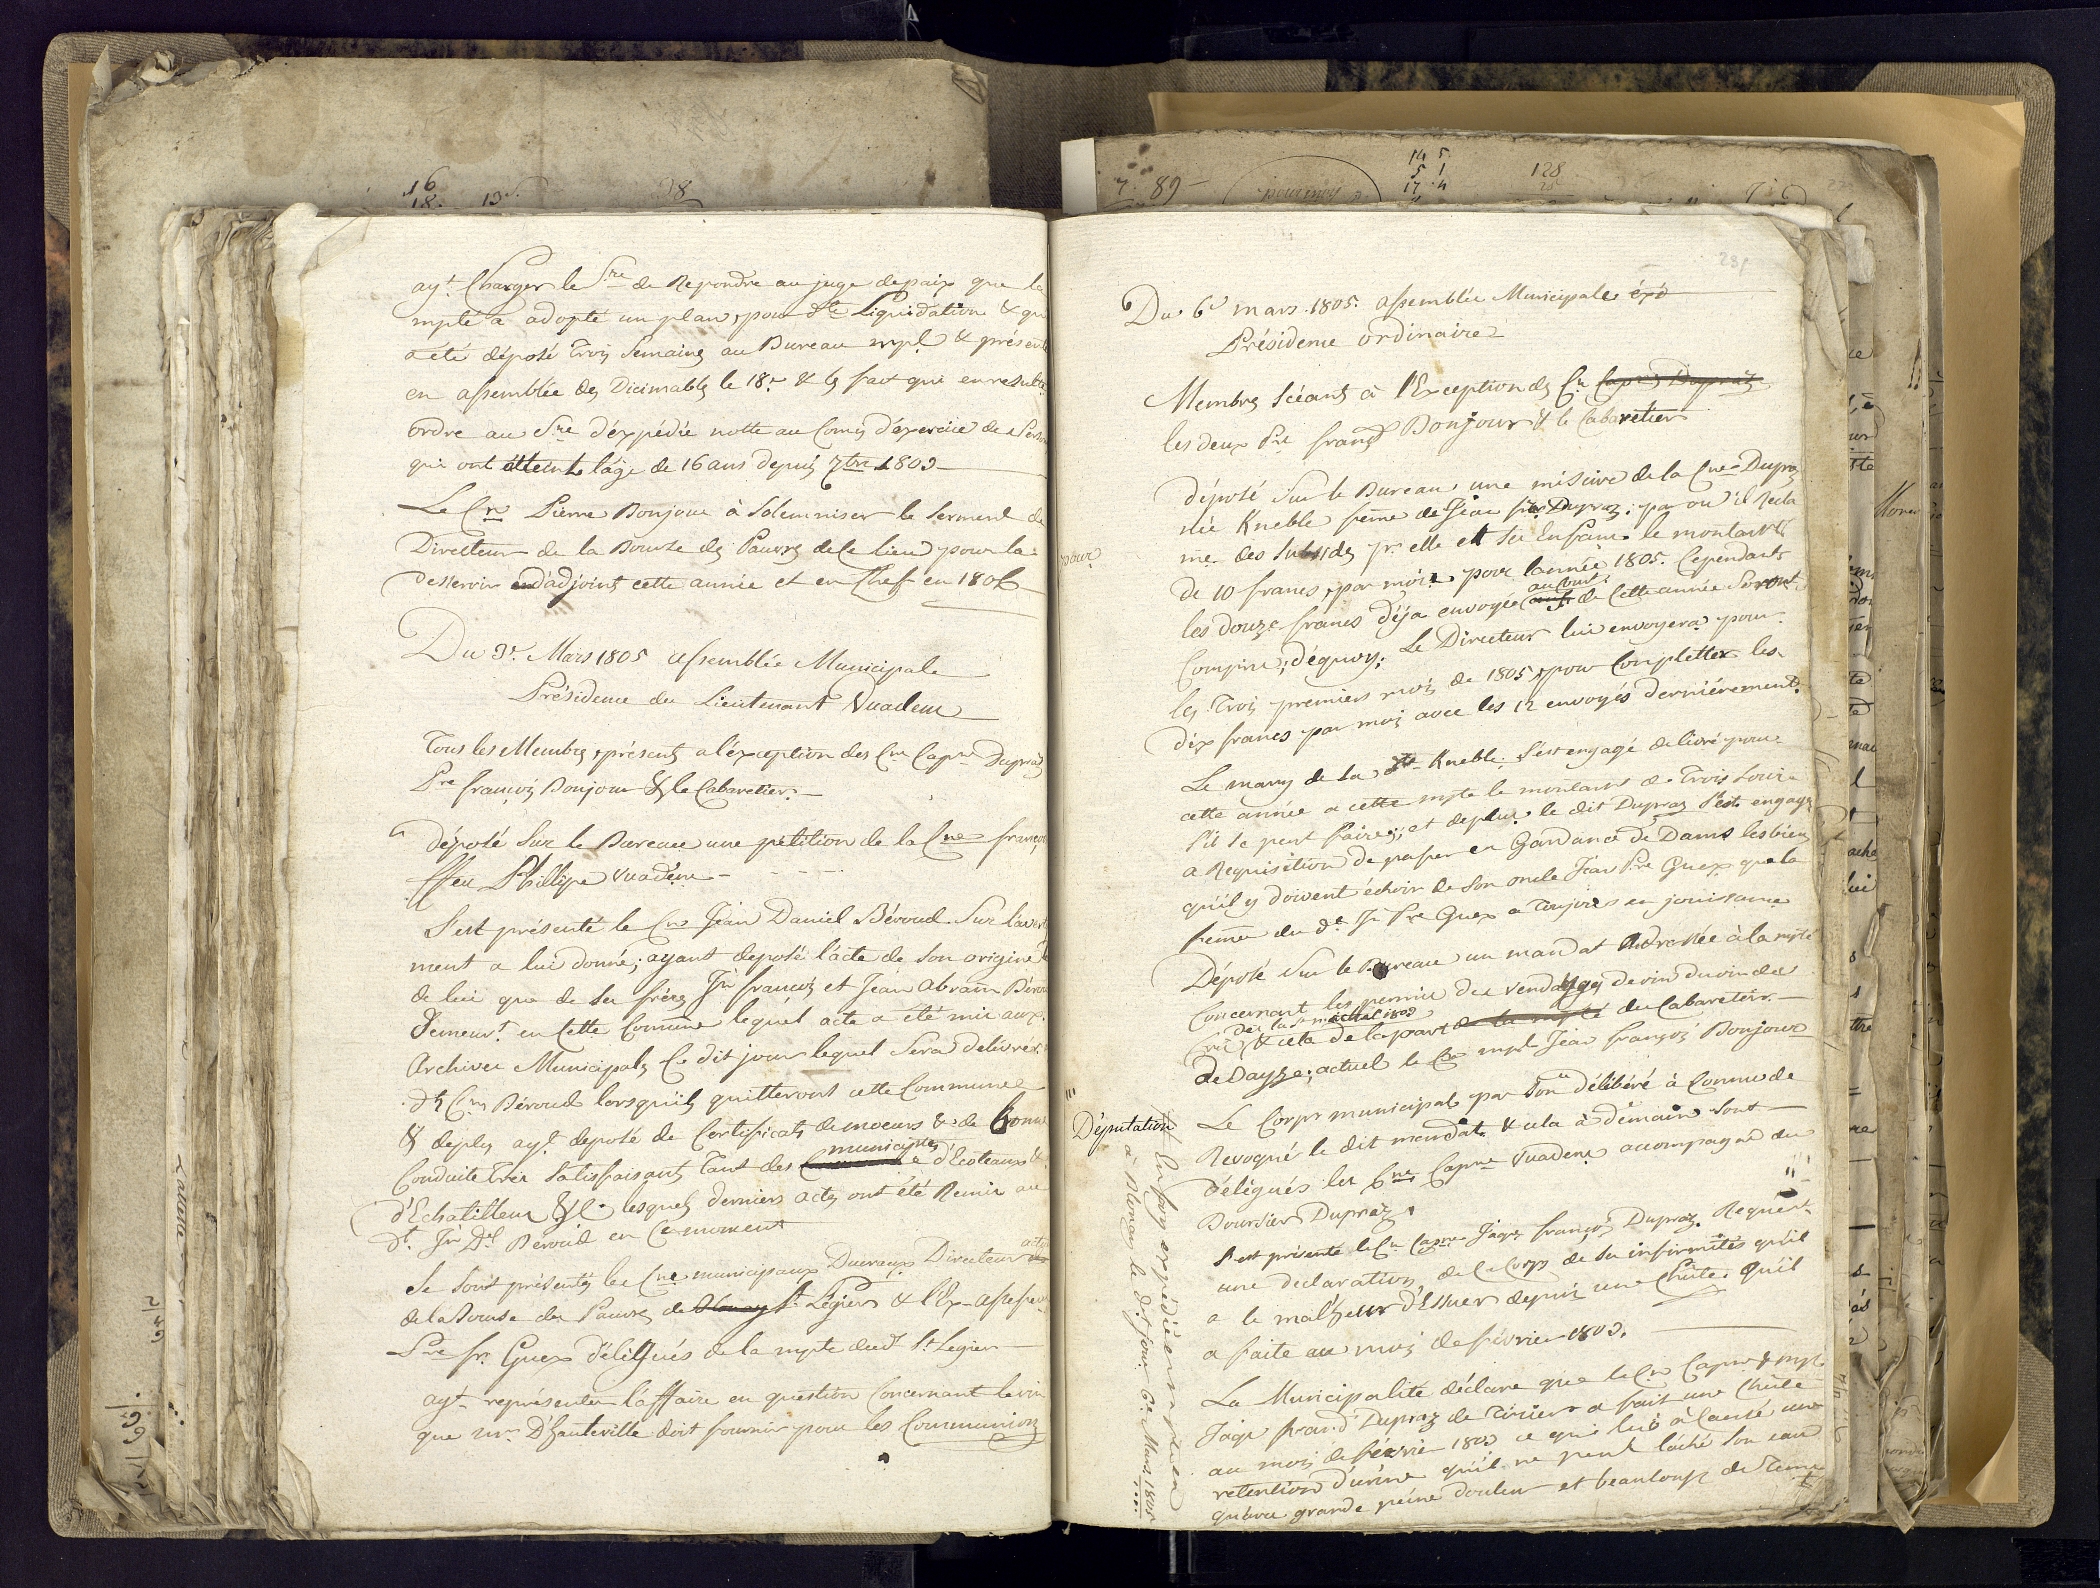 ayt. Charger le Sre de Repondre au juge de paix que la
mplté a adopté un plan, pour dte Liquidation & qui
a été déposé trois Semaines au Bureau mpl. & présenté
en assemblée des Dicimables le 18e & le fait qui en résulte
ordre au Sre d'éxpédié notte au Comis d'éxercice de
qui ont atteint l'âge de 16 ans depuis 7bre 1803
Le Cn Pierre Bonjour à Solemniser le Serment de
Directeur de la Bourse des Pauvres de ce lieu pour la
desservir d'adjoint cette année et en Chef en 1806
Du 3e. Mars 1805 assemblée Municipale
Présidence du Lieutenant Vuadens
Tous les Membres présents a l'éxception des Cns Capne Dupraz
Pre françois Bonjour & le Cabaretier.
déposé Sur le Bureau une pétition de la Cne françoise
ffeu Phillipe Vuadens
S'est présenté le Cn Jean Daniel Béroud Sur l'avert
ment a lui donné; ayant deposé l'acte de son origine
de lui que de Ses frères Jn françois et Jean abram Béroud
demeurt. en Cette Commune lequel acte a été mis aux
Archives Municipales Ce dit jour lequel Sera délivré
ds Cns Béroud lorsquils quitteront cette Commune
& deplus ayt. deposé de Certificats de moeurs & de bonne
municipalités
Conduite très Satisfaisants tant des Communes d'Ecoteaux &
d'Echatillens &c. lesquels derniers actes ont été Remis au
dt. Jn Dl Béroud en Ce moment
actuel
Se sont présentés les Cns municipaux Ducraux Directeur
de la Bourse des Pauvres de Blonay St. Légier & l'Ex-assesseur
Pre fs. Guex délégués de la mplté dud St. Legier
ayt. représenter l'affaire en question Concernant le vin
que mr. D'hauteville doit fournir pour les Communions
231
Du 6e mars 1805. assemblée Municipale
Présidence ordinaire
Membres Séeants à l'Exception des Cn Capne Dupraz
les deux Pre frans Bonjour & le Cabaretier
déposé Sur le Bureau une missive de la Cne Dupraz
née Kneble femme de Jean Dupraz; par ou il Recla
me des Subsides pr. elle et Ses Enfans le montant
pour
de 10 francs par mois pour l'année 1805. Cependant
au Court
les douze francs déja envoyés de Cette année Seront
Compris; dequoy; Le Directeur lui envoyera pour
les trois premiers mois de 1805 pour Completter les
dix francs par mois avec les 12 envoyés dernièrement
Le mary de la dte Kneble S'est engagé de livré pour
cette année a cette mplté le montant de Trois Louis
s'il se peut faire; et deplus le dit Dupraz S'est engagé
a Requisition de passer en Gardance de Dams les biens
qu'il y doivent échoir de Son oncle Jean Pre Guex que la
femme du dt Jn Pre Guex a Toujours en jouissance
Déposé Sur le Bureau un mandat Adressée à la mplté
Concernant les permis des vendages de vin du vin de
de la St michel 1803
Cru & cela de la part de la mplté du Cabaretier
de Dayse; actuel le Cn mpl Jean François Bonjour
Le Corps municipal par Son délibéré à Connu de
Députation
Revoqué le dit mandat & cela à démain Sont
délégués les Cns Capne Vuadens accompagné du
Boursier Dupraz
à Blonay le dit jour 6e. Mars 1805
S'est présenté le Cn Capne Jaqs françois Dupraz. Requért.
une declaration de Ce Corps de Ses infirmités qu'il
a le malheur d'Essuer depuis une Chûte qu'il
a faite au mois de février 1803.
La Municipalité déclare que le Cn Capne & mpl
Jaqs fran.s Dupraz de a fait une Chûte
au mois de février 1803 ce qui lui à causé une
retention d'urine qu'il ne peut lâché Son eau
qu'avec grande peine douleur et beaucoup de Tems